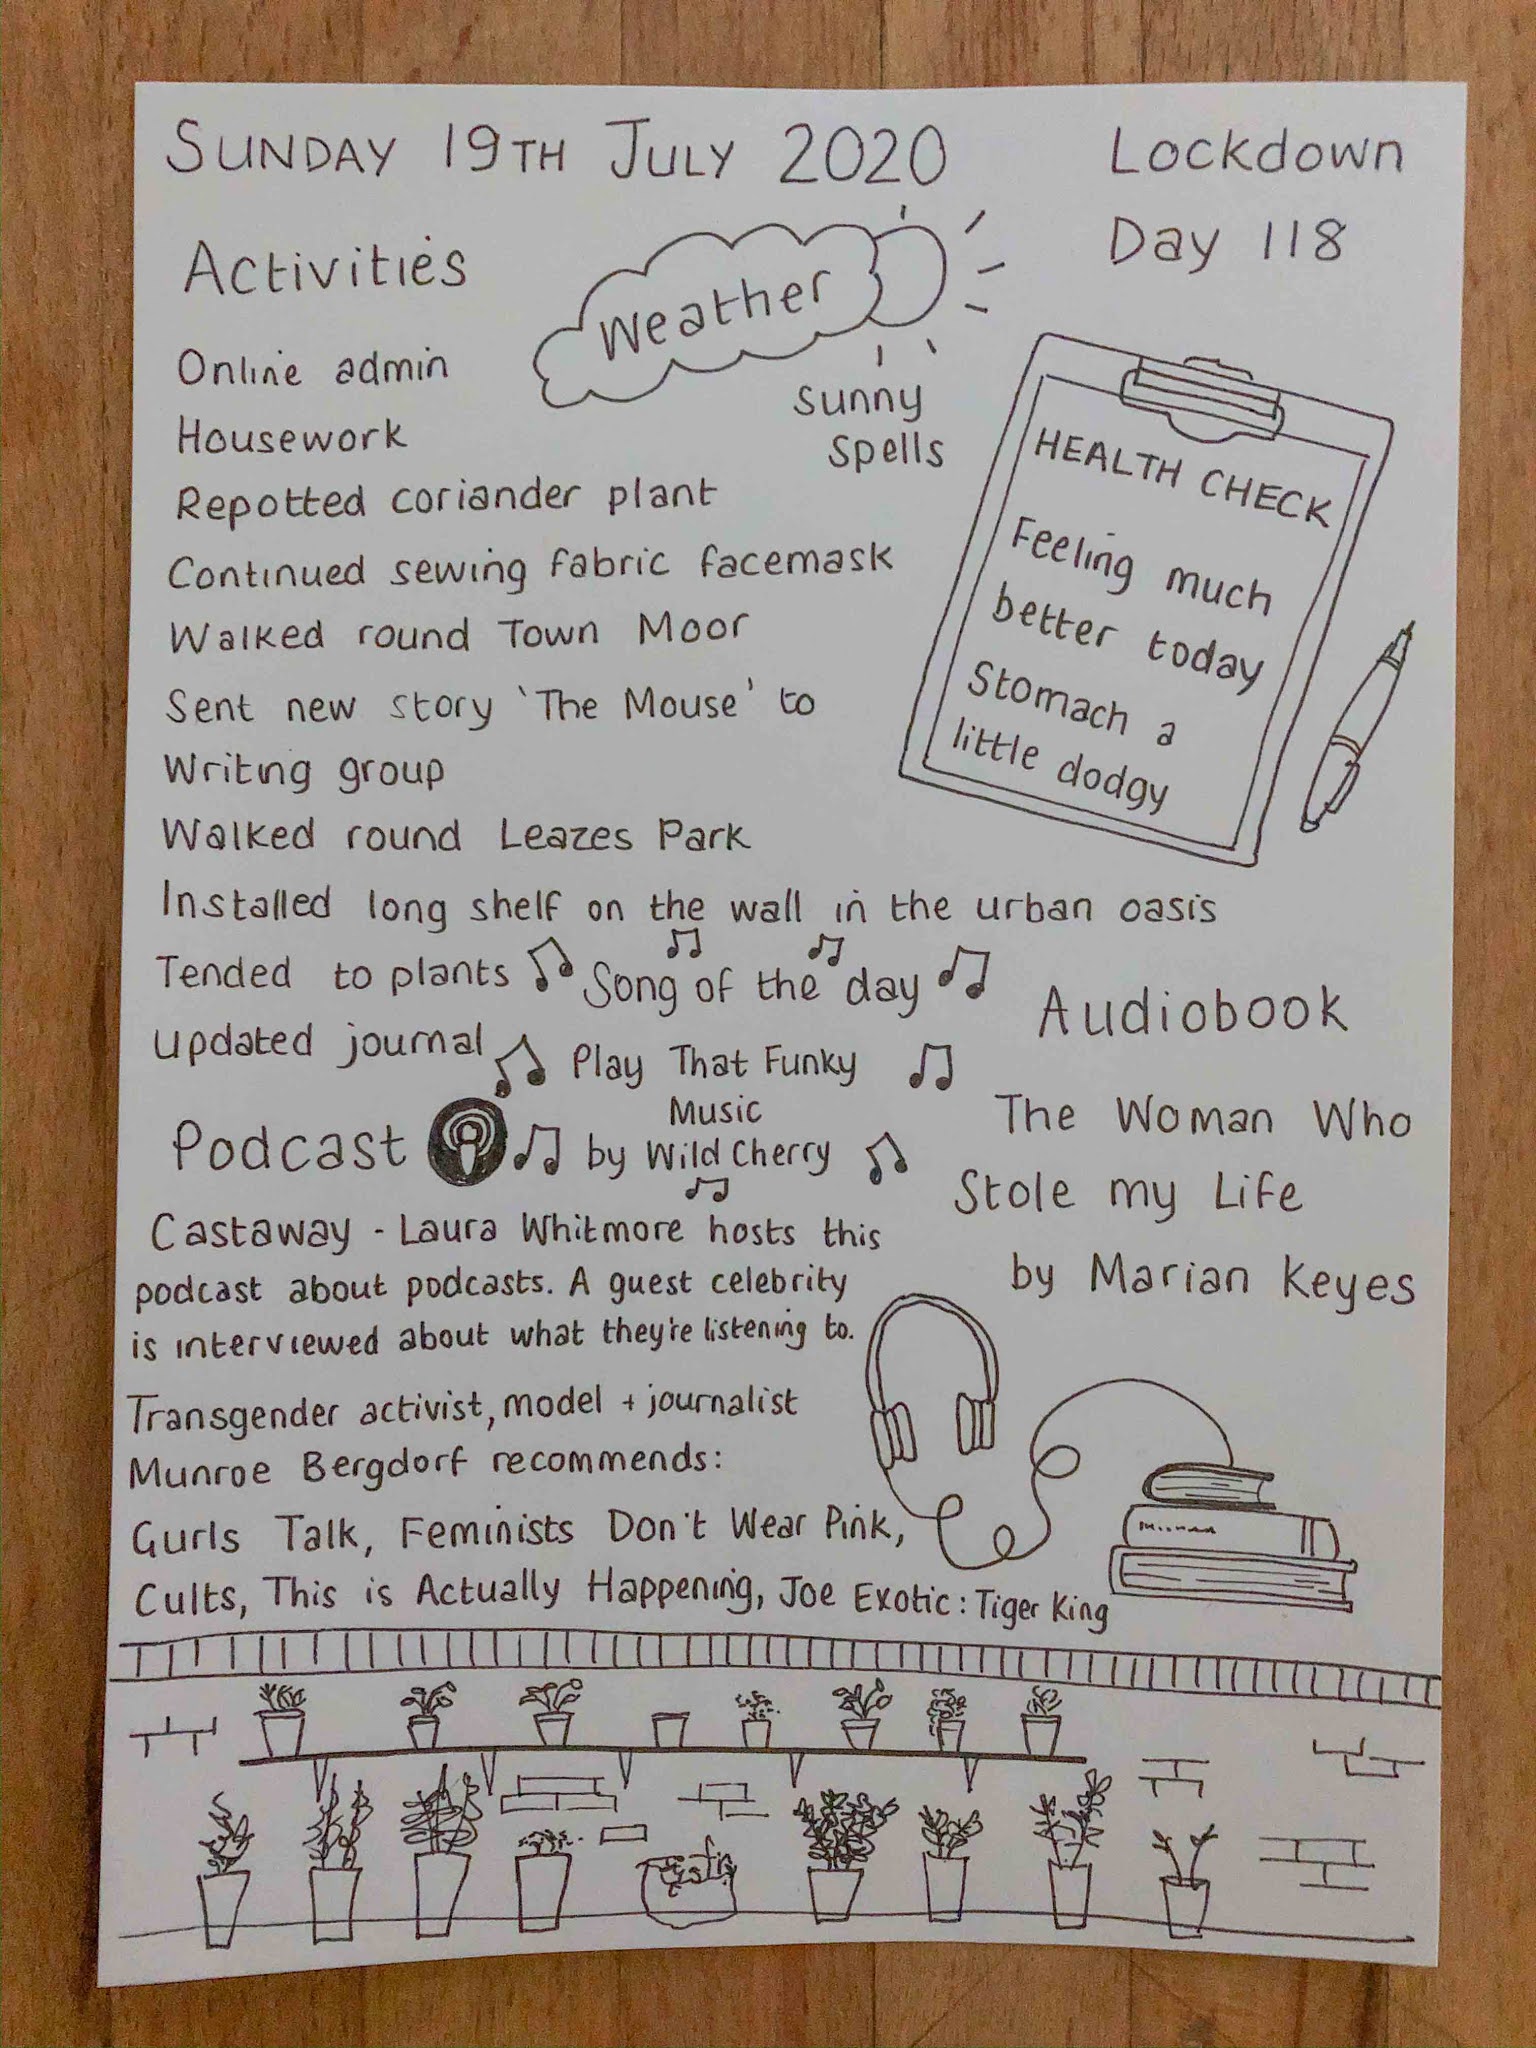 SUNDAY 19TH JULY 2020
Lockdown
Day 118
Activities
Weather
Sunny
Spells
Online admin
Housework
Repotted coriander plant
Continued sewing fabric facemask
Walked round Town Moor
Sent new story 'The Mouse' to
Writing group
Walked round Leazes Park
Installed long shelf on the wall in the urban oasis
Tended to plants
Updated journal
HEALTH CHECK
Feeling much
better today
Stomach a
little dodgy
Song of the day
Play That Funky
Music
by Wild Cherry
Audiobook
The Woman Who
Stole my Life
by Marian Keyes
Podcast
Castaway - Laura Whitmore hosts this
podcast about podcasts. A guest celebrity
is interviewed about what they're listening to.
Transgender activist, model + journalist
Munroe Bergdorf recommends:
Gurls Talk, Feminists Don't Wear Pink,
Cults, This is Actually Happening, Joe Exotic: Tiger King